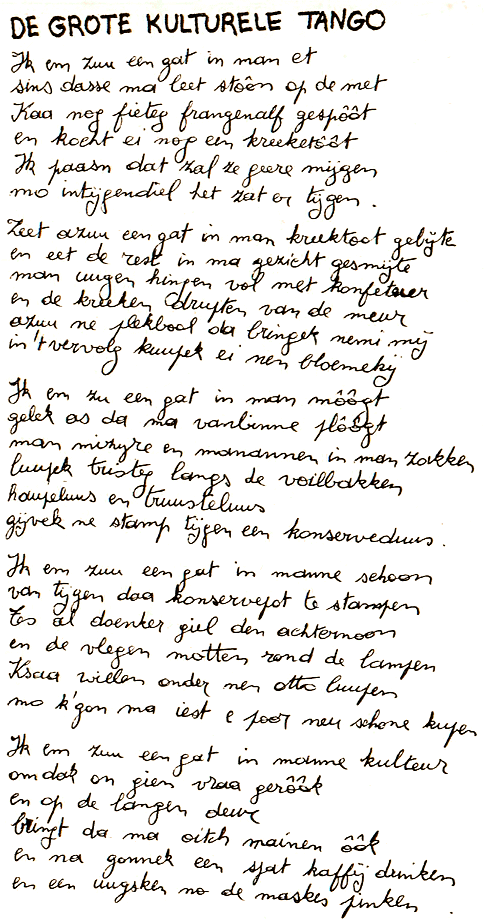 DE GROTE KULTURELE TANGO
Ik em zuu een gat in man et
sins dasse ma leet stôôn op de met
Kaa nog fieteg frangenalf gespôôt
en kocht ei nog een kreeketôôt
Ik paasn dat zal ze geere mijgen
mo intijgendiel het zat er tijgen.
Zeet azuu een gat in man kreektoot gebijte
en eet de rest in ma gezicht gesmijte
man uugen hingen vol met konfeteuer
en de krieken drupten van de meur
azuu ne plekbool da bringek nemi mij
in 't vervolg kuupek ei nen bloemekij
Ik em zu een gat in man môôgt
gelek as da ma vanbinne plôôgt
man mizyre en manannen in man zakken
luupek tristeg langs de voilbakken
houpeluus en truusteluus
gijvek ne stamp tijgen een konserveduus.
Ik em zuu een gat in manne schoon
van tijgen daa konservepot te stampen
Tes al doenker giel den achternoon
en de vlegen motten rond de lampen
Ksaa willen onder nen otto luupen
mo k'gon ma iest e poor neu schone kupen
Ik em zuu een gat in manne kulteur
omdak on gien vraa gerôôk
en op de langen deur
bringt da ma oitch mainen ôôk
en na gonnek een sjat kaffij drinken
en een uugsken no de maskes pinken.